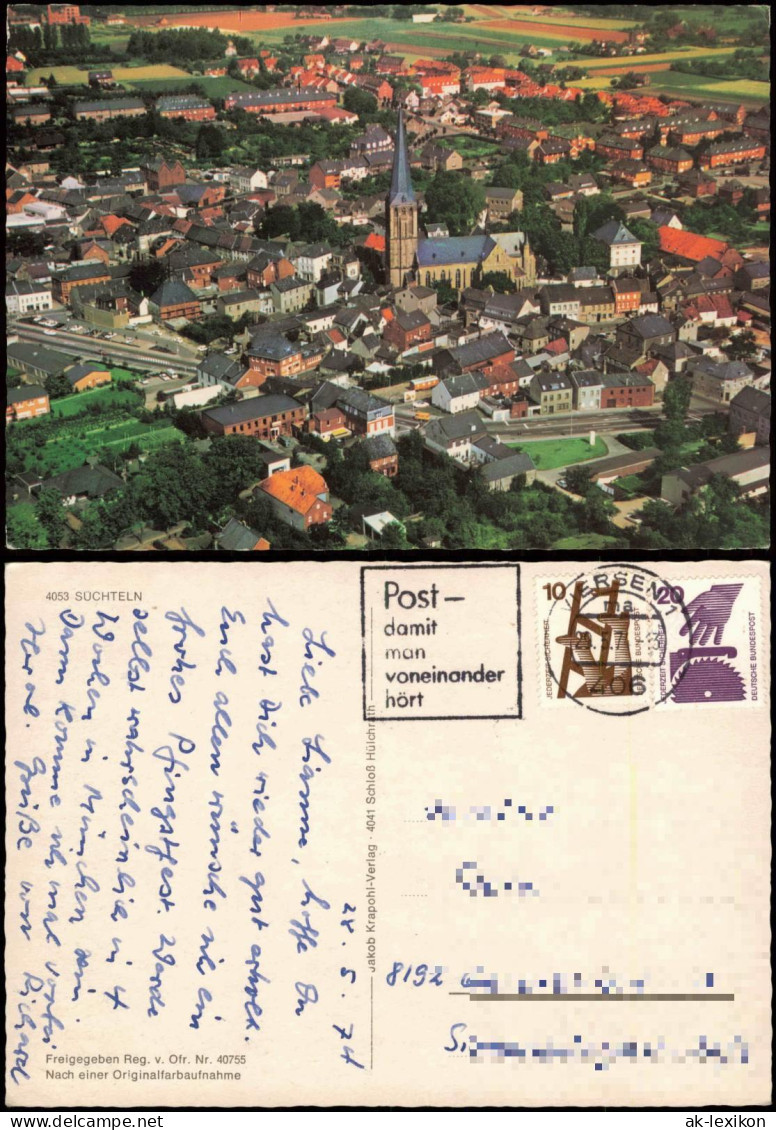 4053 SÜCHTELN
Liebe Hanne, hoffe Du
hast Dich wieder gut erholt.
Euch allen wünsche ich ein
frohes Pfingstfest. Werde
selbst wahrscheinlich in 4
Wochen in München sein.
Dann komme ich mal vorbei
Herzl. Grüße von Richard
28. 5. 74
Freigegeben Reg. v. Ofr. Nr. 40755
Nach einer Originalfarbaufnahme
Jakob Krapohl-Verlag · 4041 Schloß Hülchrath
Post –
damit
man
voneinander
hört
VIERSEN 1
ma
406
10
JEDERZEIT SICHERHEIT
DEUTSCHE BUNDESPOST
20
JEDERZEIT SICHERHEIT
DEUTSCHE BUNDESPOST
8192
www.ansichtskarten-lexikon.de
ak-lexikon